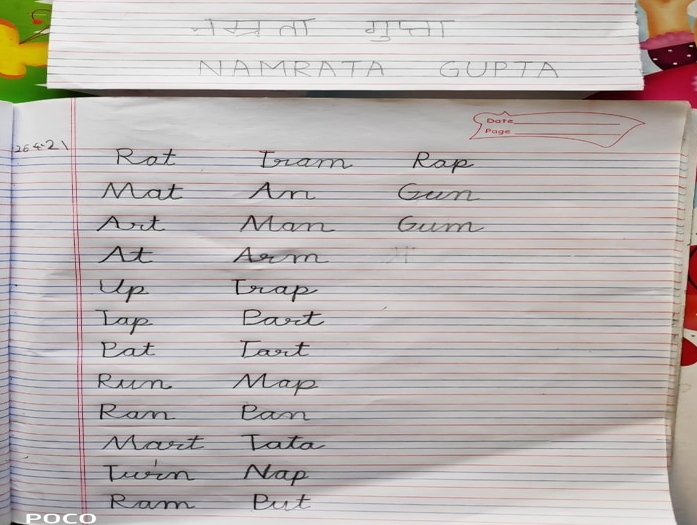 नम्रता गुप्ता
NAMRATA GUPTA
Date
Page
26-4-21
Rat Tram Rap
Mat An Gun
Art Man Gum
At Arm
Up Trap
Tap Part
Pat Tart
Run Map
Ran Pan
Mart Tata
Turn Nap
Ram Put
POCO